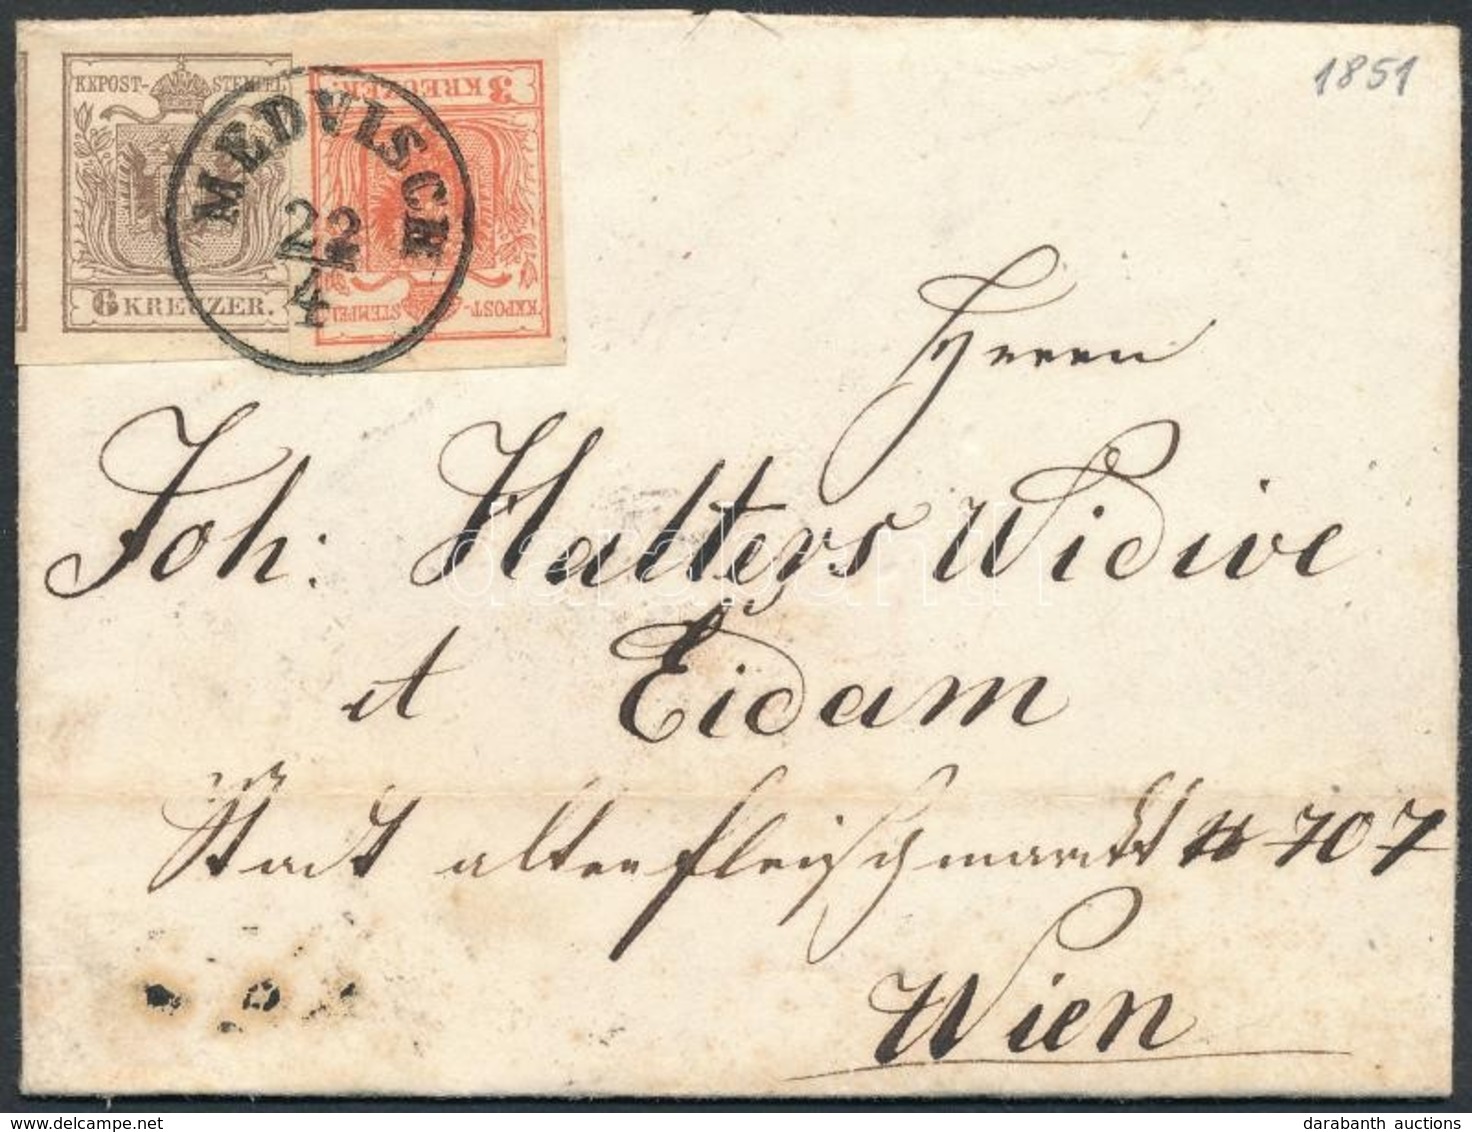 KKPOST-STEMPEL
6 KREUZER.
3 KREUZER.
KKPOST-STEMPEL
MEDVISCH
22
4
1851
Herrn
Joh: Halters Widwe
et Eidam
Stadt alten fleischmarkt # 707
Wien
darabanth
delcampe.net
darabanth auctions